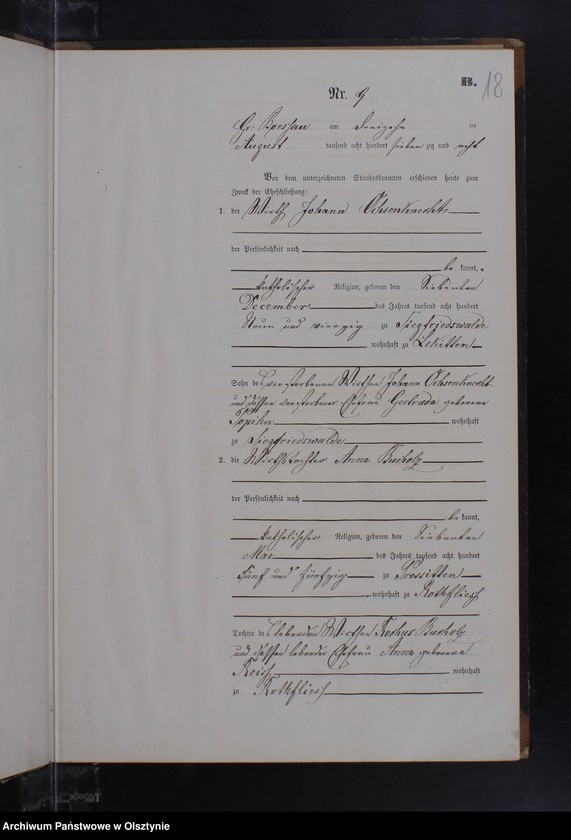 B.
18
Nr. 9
Gr. Boessau am dreizehn ten
August tausend acht hundert sieben zig und acht
Vor dem unterzeichneten Standesbeamten erschienen heute zum
Zweck der Eheschließung:
1. der Wirth Johann Ochsenknecht
der Persönlichkeit nach
be kannt,
katholischer Religion, geboren den Siebenten
December des Jahres tausend acht hundert
Neun und vierzig zu Siegfriedswalde
wohnhaft zu Lekitten
Sohn des verstorbenen Wirthen Johann Ochsenknecht
und dessen verstorbener Ehefrau Gertruda geborene
wohnhaft
zu Siegfriedswalde
2. die Wirthstochter Anna Bucholz
der Persönlichkeit nach
be kannt,
katholischer Religion, geboren den Siebenten
Mai des Jahres tausend acht hundert
Fünf und fünfzig zu Prossitten
wohnhaft zu Rothfliesz
Tochter des lebenden Wirthen Rochus Bucholz
und dessen lebender Ehefrau Anna geborene
wohnhaft
zu Rothfliesz
Archiwum Państwowe w Olsztynie